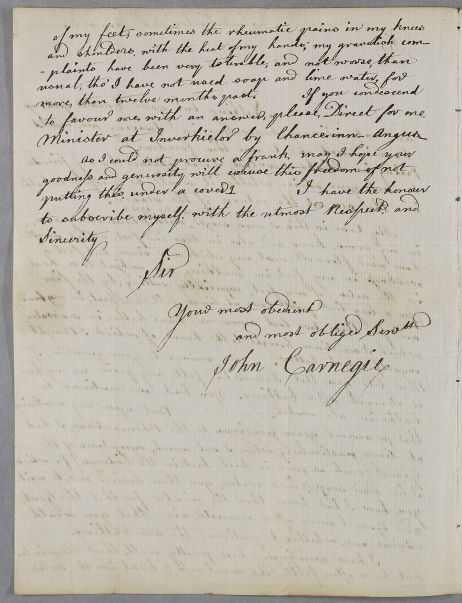 of my feet, sometimes the rheumatic pains in my knees
and shoulders, with the heat of my hands; my gravelish com-
-plaints have been very tolerable, and not worse, than
usual, tho' I have not used soap and lime water, for
more, than twelve months past. If you condescend
to favour me, with an answer, please, Direct for me
Minister at Inverkielor by Chance-inn - Angus
As I could not procure a frank, may I hope your
goodness and generosity will excuse this freedom of not
putting this, under a cover. I have the honour
to subscribe myself, with the utmost Respect, and
Sincerity
Sir
Your most obedient
and most obliged Servtt
John Carnegie